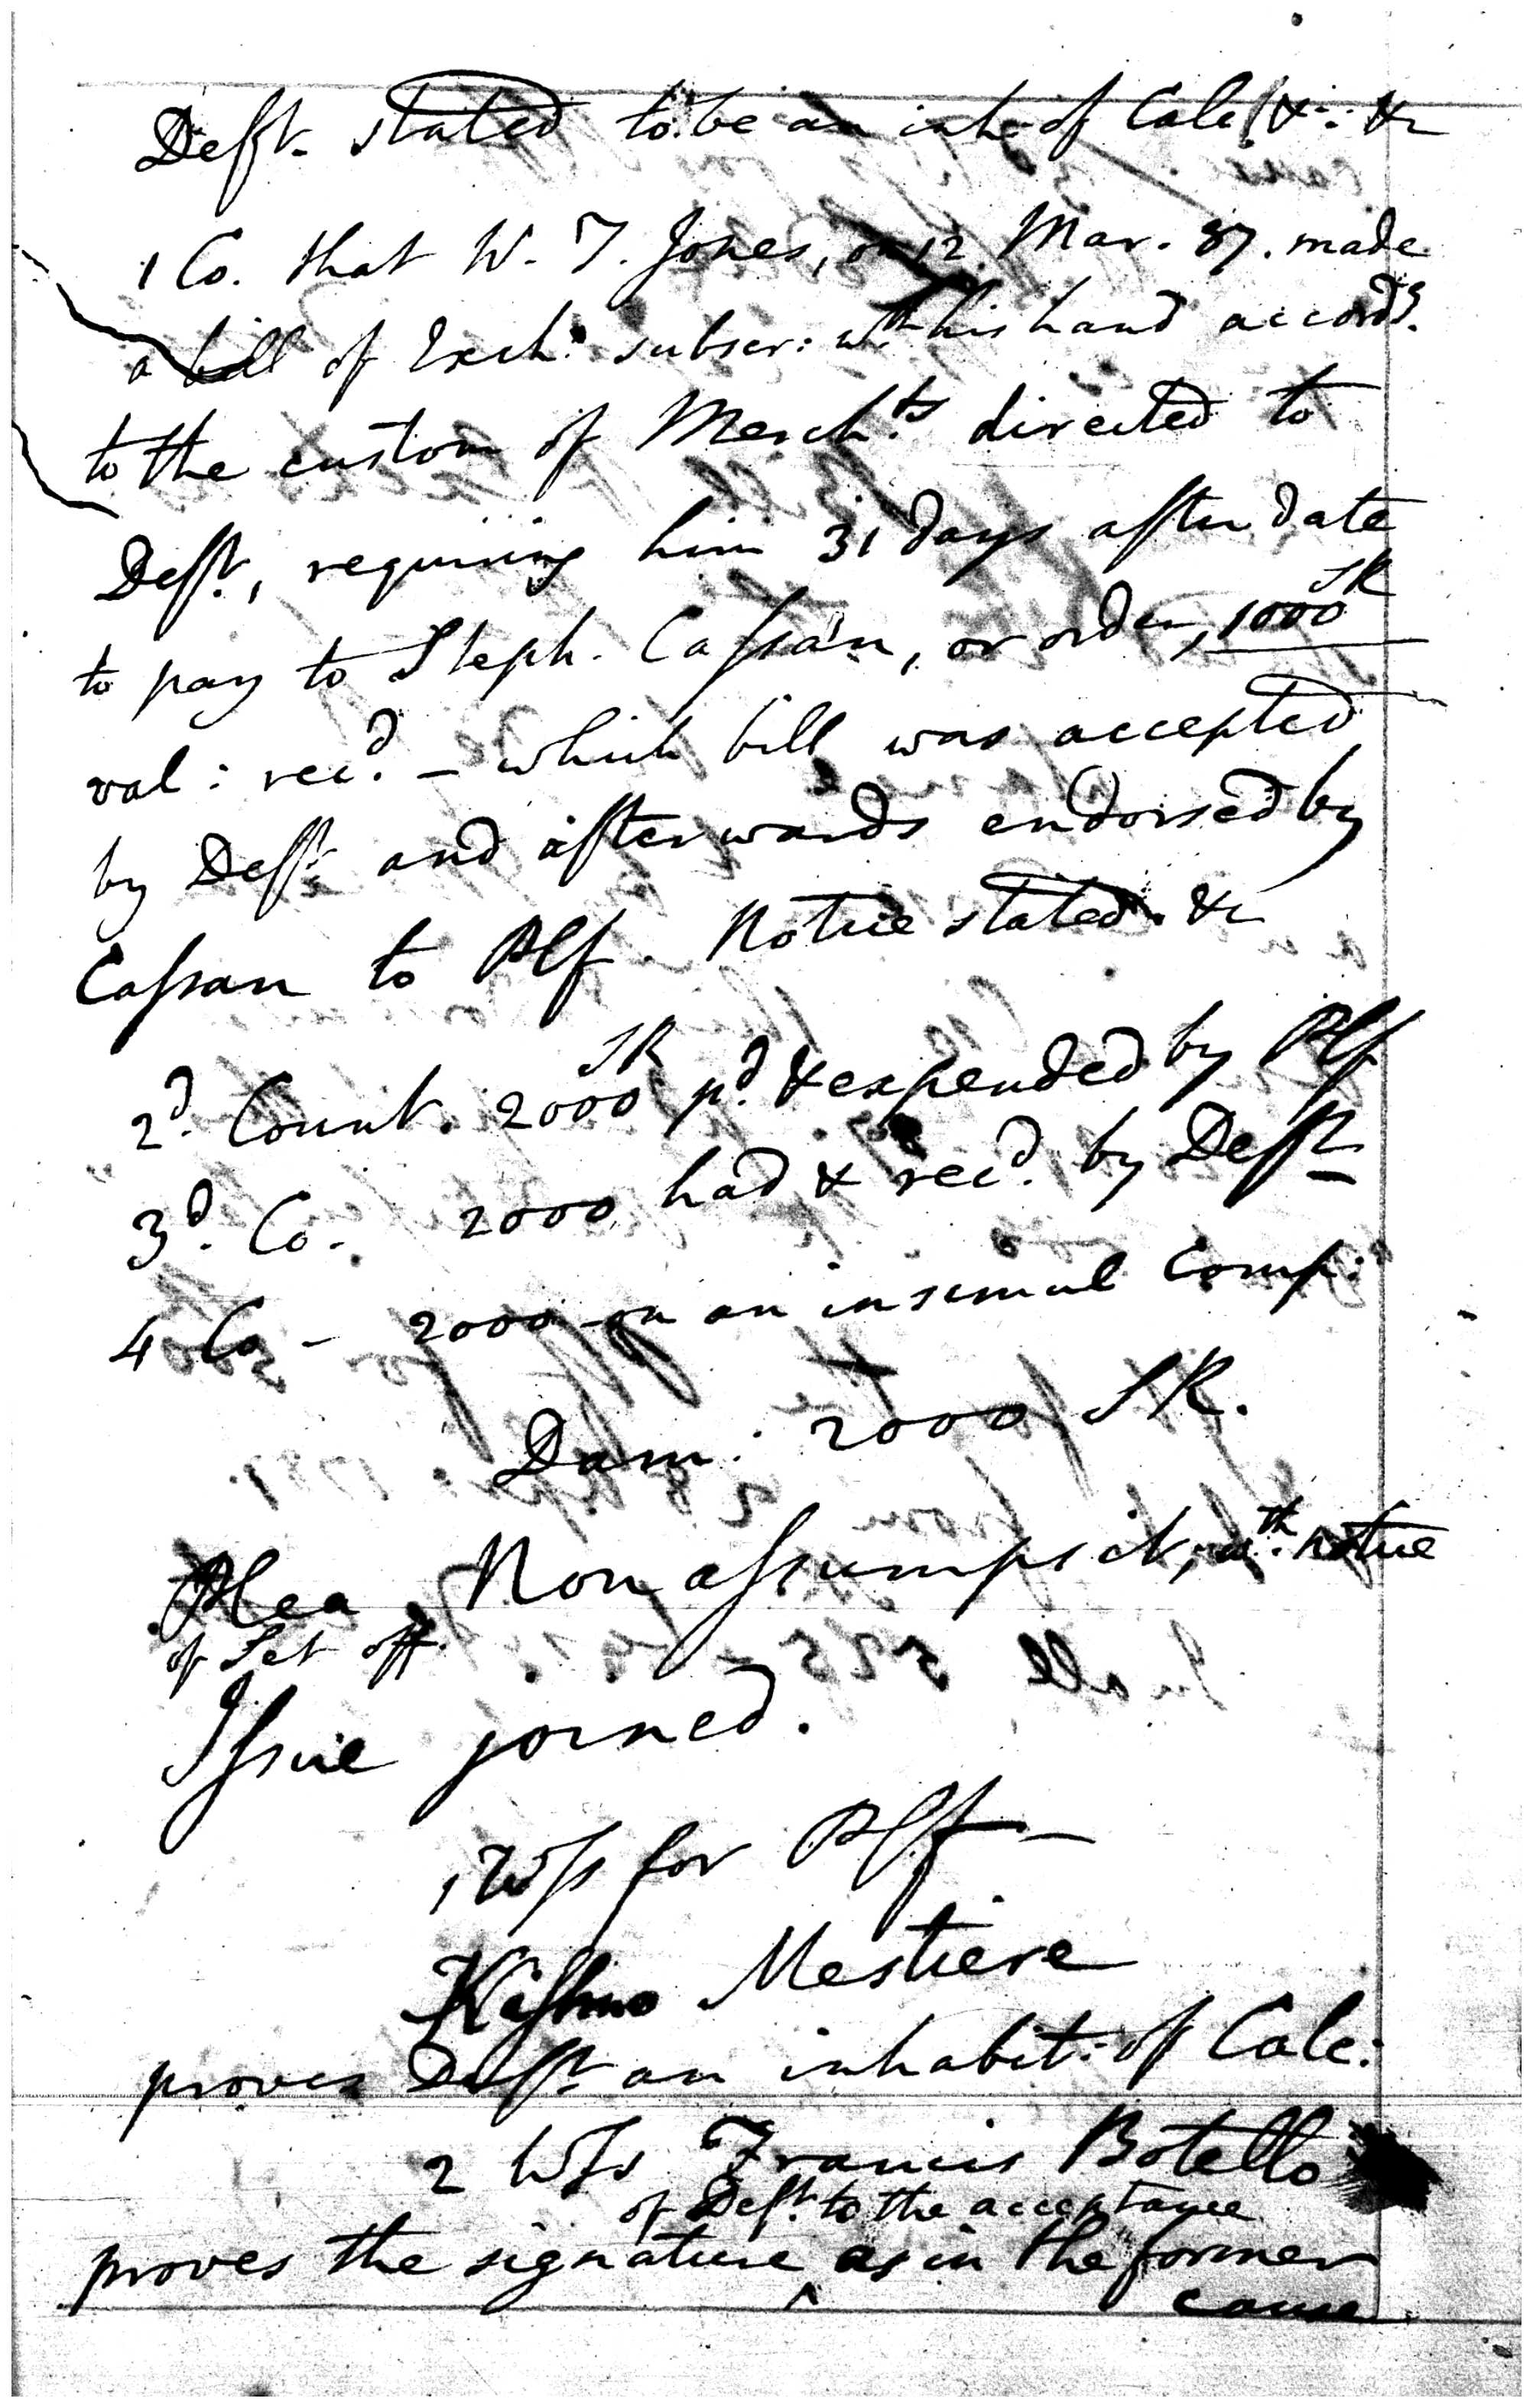 Deft. stated to be an inh. of Calc. &c. &c
1 Co. that W. T. Jones, on 12. Mar. 87. made
a bill of Exch. subscr: wth. his hand accordg.
to the custom of Merchts. directed to
Deft., requiring him 31 days after date
to pay to Steph. Cassan, or order, 1000 SR
val: recd. - which bill was accepted
by Deft. and afterwards endorsed by
Cassan to Plf. Notice stated. &c
2d. Count. 2000 SR pd. & expended by Plf
3d. Co. 2000 had & recd. by Deft.
4 Co - 2000 on an insimul Comp:
Dam: 2000 SR.
Plea Non assumpsit, wth. notice
of Set off.
Issue joined.
1 Wss for Plf -
Mestiere
proves Deft. an inhabit: of Calc:
2 Wss Francis Botello
of Deft. to the acceptance
proves the signature ^ as in the former
cause